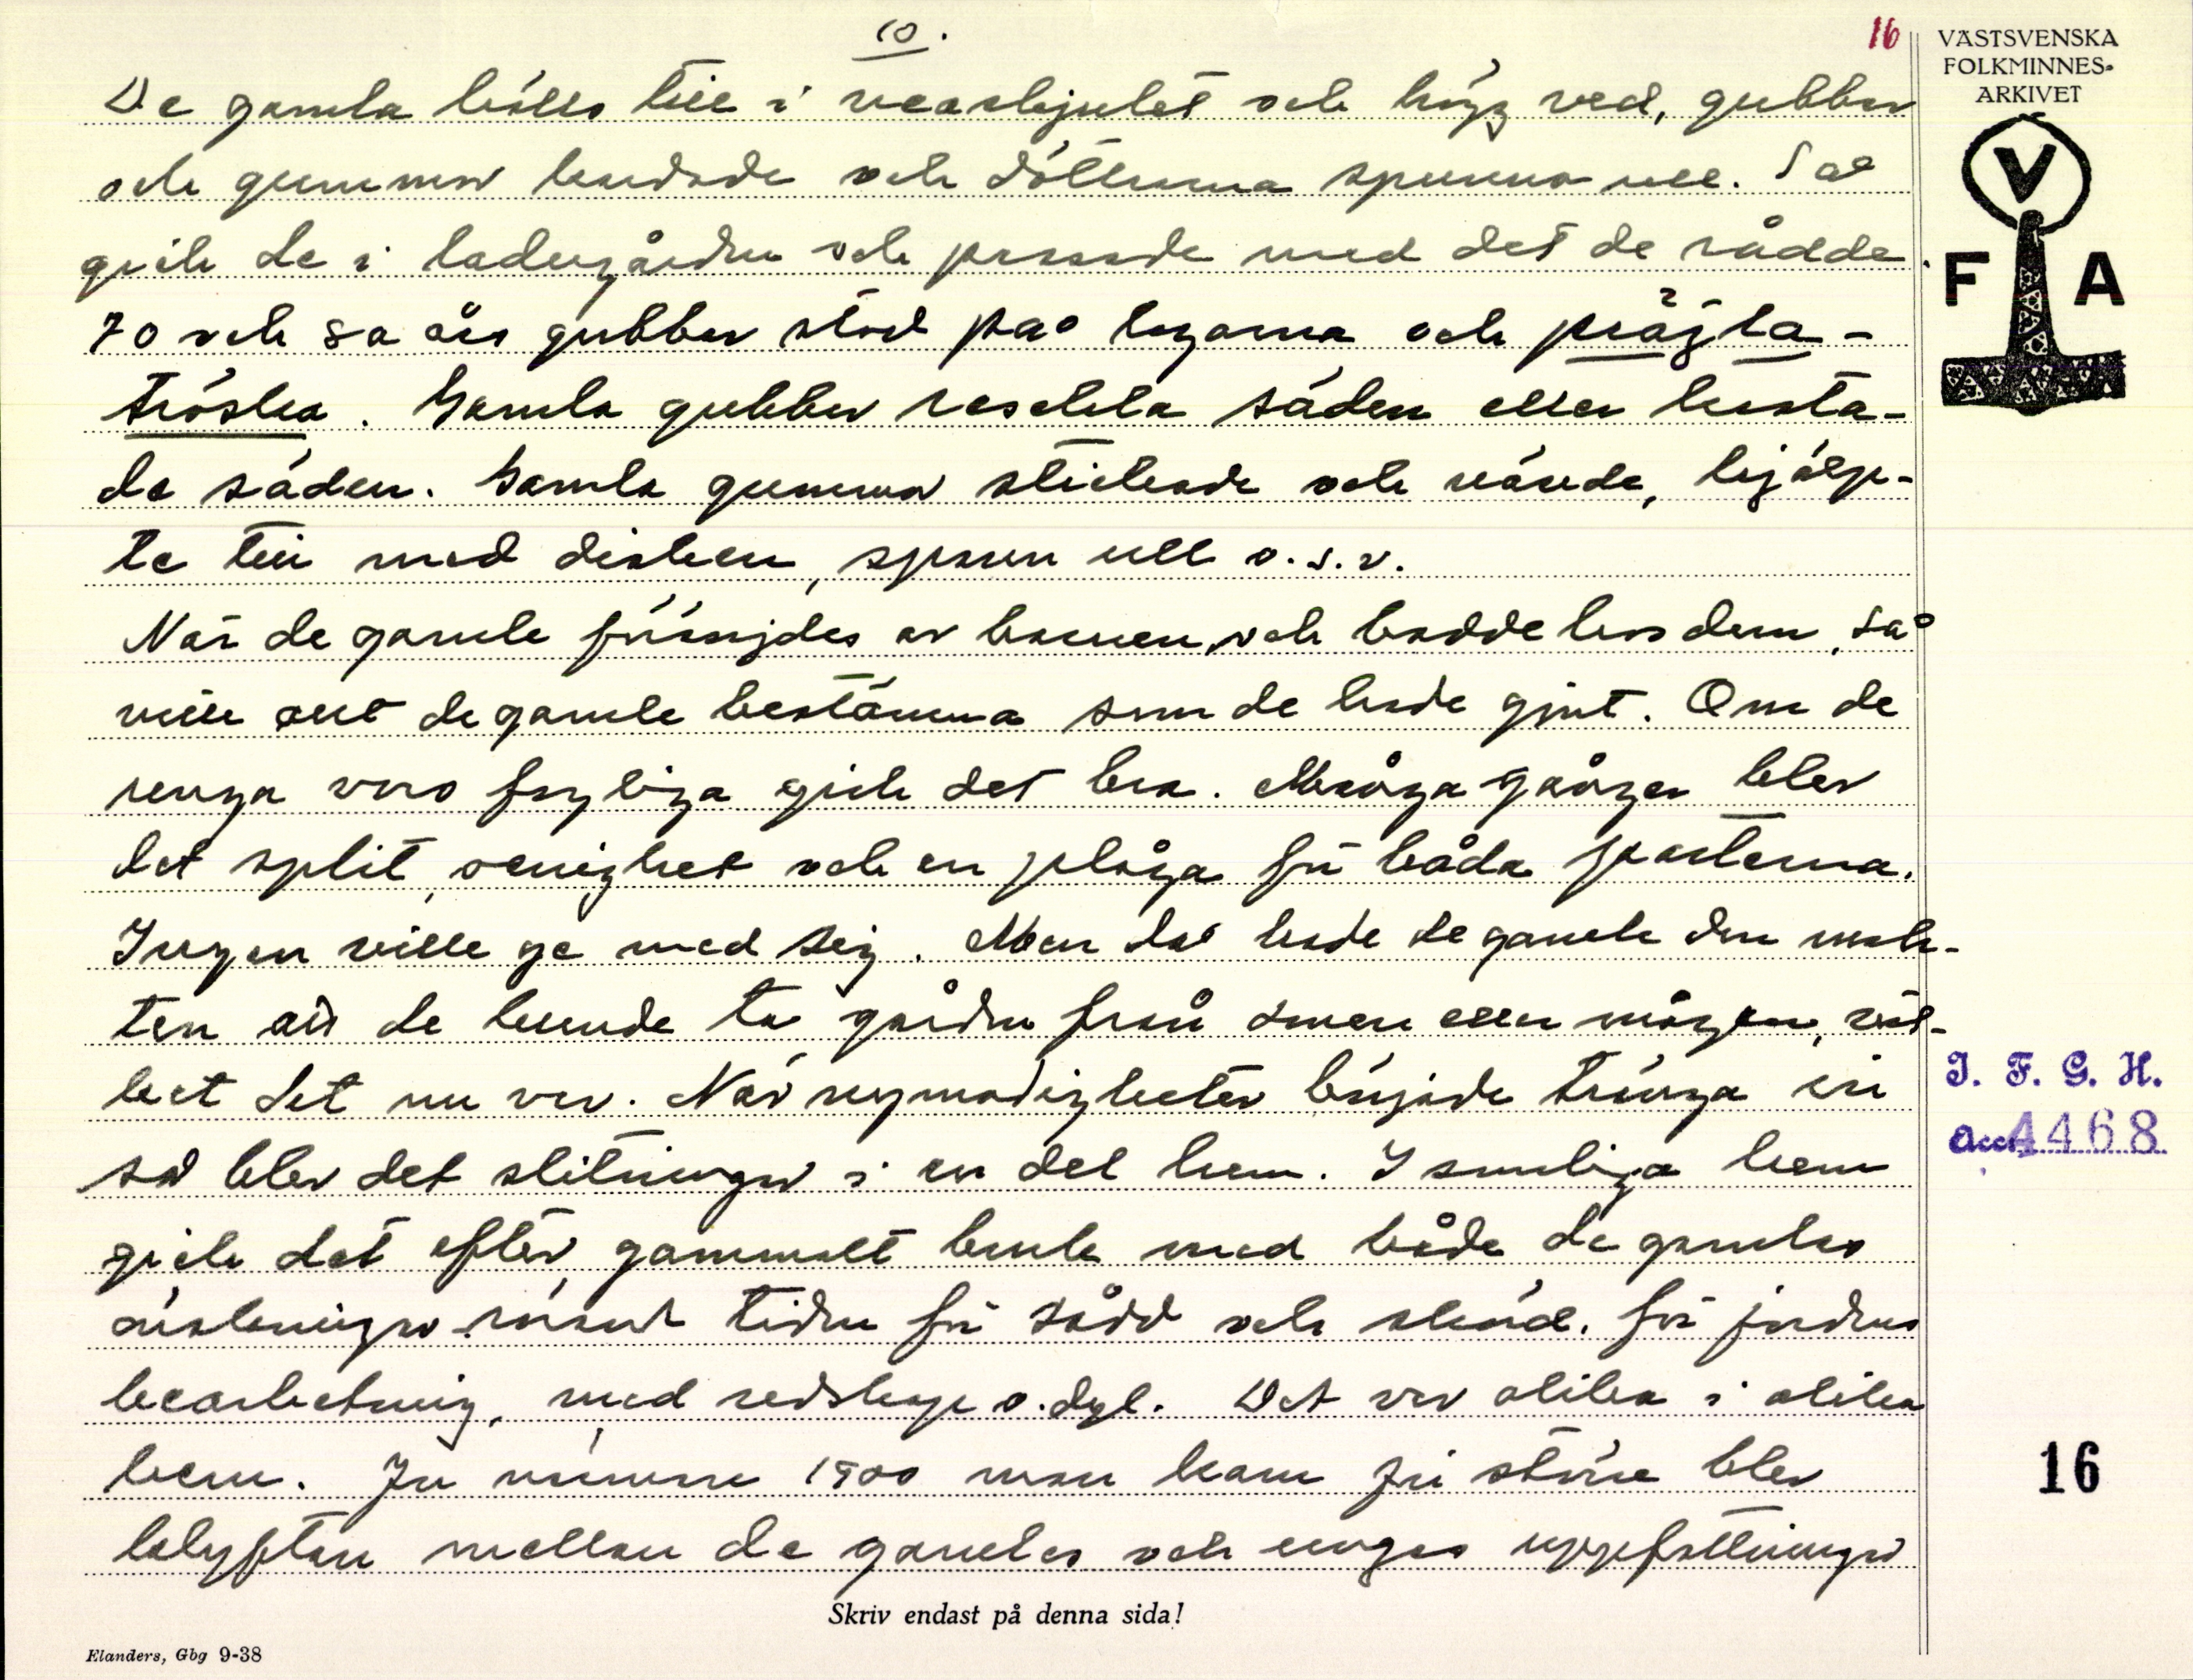 10.
16
VÄSTSVENSKA
FOLKMINNES-
ARKIVET
V
F A
De gamla hölls till i veaskjulet och högg ved, gubbar
och gummor kardade och döttrarna spunno ull. Så
gick de i ladugården och passade med det de rådde.
70 och 80 års gubbar stod på logarna och prägla-
tröska. Gamla gubbar säden eller kasta-
de säden. Gamla gummor stickade och vävde, hjälp-
te till med disken, spann ull o.s.v.
När de gamle försörjdes av barnen, och bodde hos dem, så
ville allt de gamle bestämma som de hade gjort. Om de
unga voro fogliga gick det bra. Många gånger blev
det split, oenighet och en plåga för båda parterna.
Ingen ville ge med sig. Men då hade de gamle den mak-
ten att de kunde ta gården från sonen eller mågen,
det nu var. När nymodigheter började tränga in
så blev det slitningar i en del hem. I somliga hem
gick det efter gammalt bruk med både de gamles
åskådningar rörande tiden för sådd och skörd, för jordens
bearbetning, med redskap o.dyl. Det var olika i olika
hem. Ju närmre 1900 man kom ju större blev
klyftan mellan de gamles och ungas uppfattningar
I. F. G. H.
Acc. 4468
16
Skriv endast på denna sida!
Elanders, Gbg 9-38